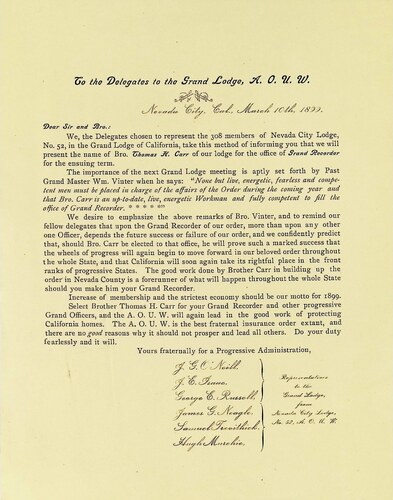 To the Delegates to the Grand Lodge, A. O. U. W.
Nevada City, Cal., March 10th, 1899.
Dear Sir and Bro.:
We, the Delegates chosen to represent the 308 members of Nevada City Lodge,
No. 52, in the Grand Lodge of California, take this method of informing you that we
will present the name of Bro. Thomas H. Carr of our lodge for the office of Grand Recorder
for the ensuing term.
The importance of the next Grand Lodge meeting is aptly set forth by Past
Grand Master Wm. Vinter when he says: "None but live, energetic, fearless and compe-
tent men must be placed in charge of the affairs of the Order during the coming year and
that Bro. Carr is an up-to-date, live, energetic Workman and fully competent to fill the
office of Grand Recorder. * * * * * "
We desire to emphasize the above remarks of Bro. Vinter, and to remind our
fellow delegates that upon the Grand Recorder of our order, more than upon any other
one Officer, depends the future success or failure of our order, and we confidently predict
that, should Bro. Carr be elected to that office, he will prove such a marked success that
the wheels of progress will again begin to move forward in our beloved order throughout
the whole State, and that California will soon again take its rightful place in the front
ranks of progressive States. The good work done by Brother Carr in building up the
order in Nevada County is a forerunner of what will happen throughout the whole State
should you make him your Grand Recorder.
Increase of membership and the strictest economy should be our motto for 1899.
Select Brother Thomas H. Carr for your Grand Recorder and other progressive
Grand Officers, and the A. O. U. W. will again lead in the good work of protecting
California homes. The A. O. U. W. is the best fraternal insurance order extant, and there
are no good reasons why it should not prosper and lead all others. Do your duty
fearlessly and it will.
Yours fraternally for a Progressive Administration,
J. G. O'Neill,
J. E. Isaac,
George E. Russell,
James G. Neagle,
Samuel Trevithick,
Hugh Murchie,
Representatives
to the
Grand Lodge,
from
Nevada City Lodge,
No. 52, A. O. U. W.